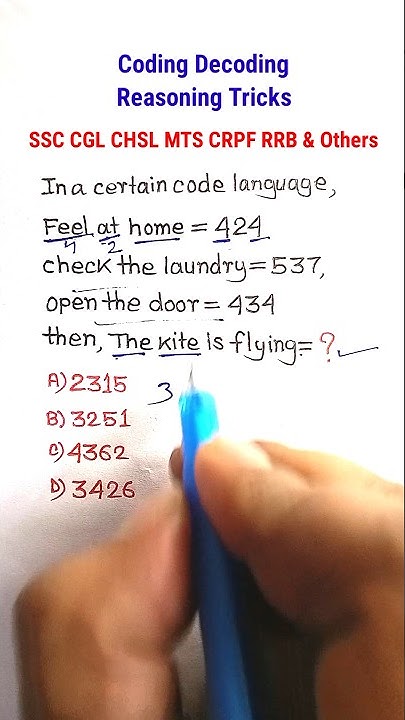 Coding Decoding
Reasoning Tricks
SSC CGL CHSL MTS CRPF RRB & Others
In a certain code language,
Feel at home = 424
4 2
check the laundry=537,
open the door = 434
then, The kite is flying= ?
A) 2315
3
B) 3251
C) 4362
D) 3426